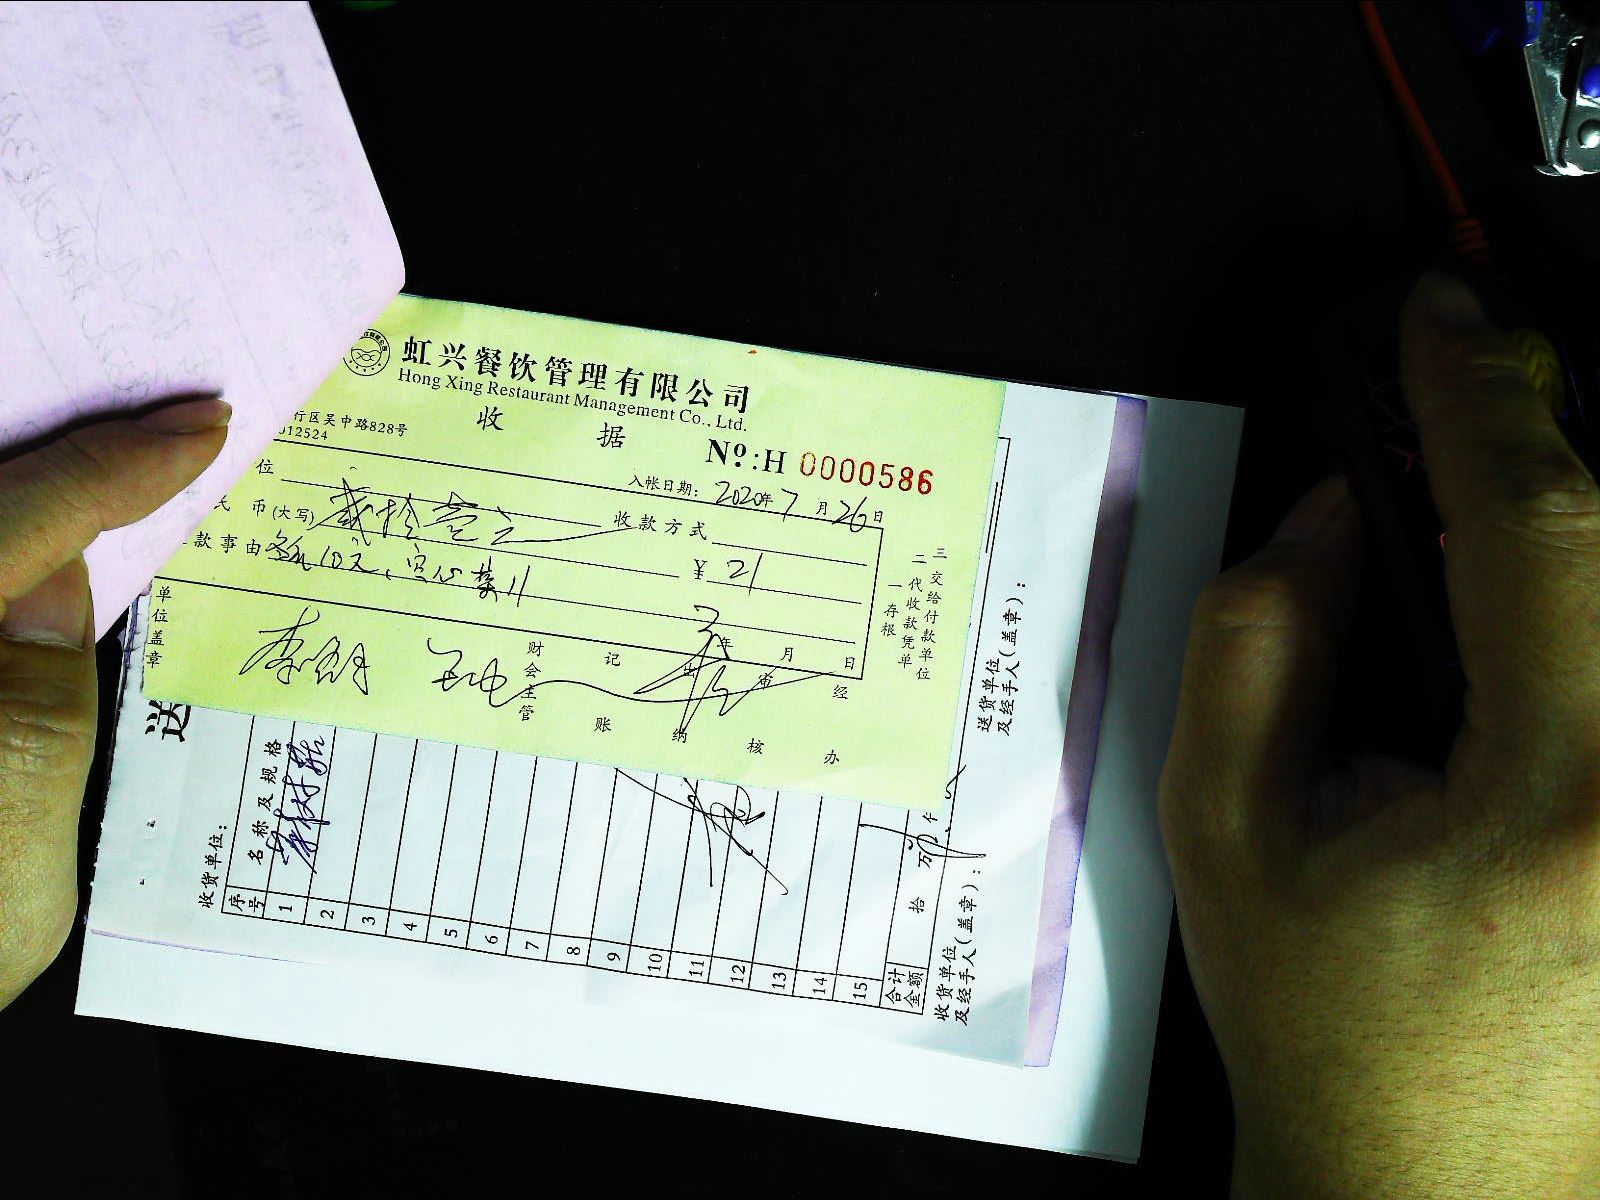 虹兴餐饮管理有限公司
Hong Xing Restaurant Management Co., Ltd.
收 据
行区吴中路828号
012524
No:H 0000586
位
入帐日期: 2020年7月26日
民 币(大写) 贰拾壹元 收款方式
款事由 10元、空心菜11 ¥ 21
年 月 日
一 存根
二 代收款凭单
三 交给付款单位
单位盖章
财会主管 记账 出纳 审核 经办
送
收货单位:
序号 名称及规格
1
2
3
4
5
6
7
8
9
10
11
12
13
14
15
合计金额 拾 万
收货单位及经手人(盖章):
送货单位及经手人(盖章):